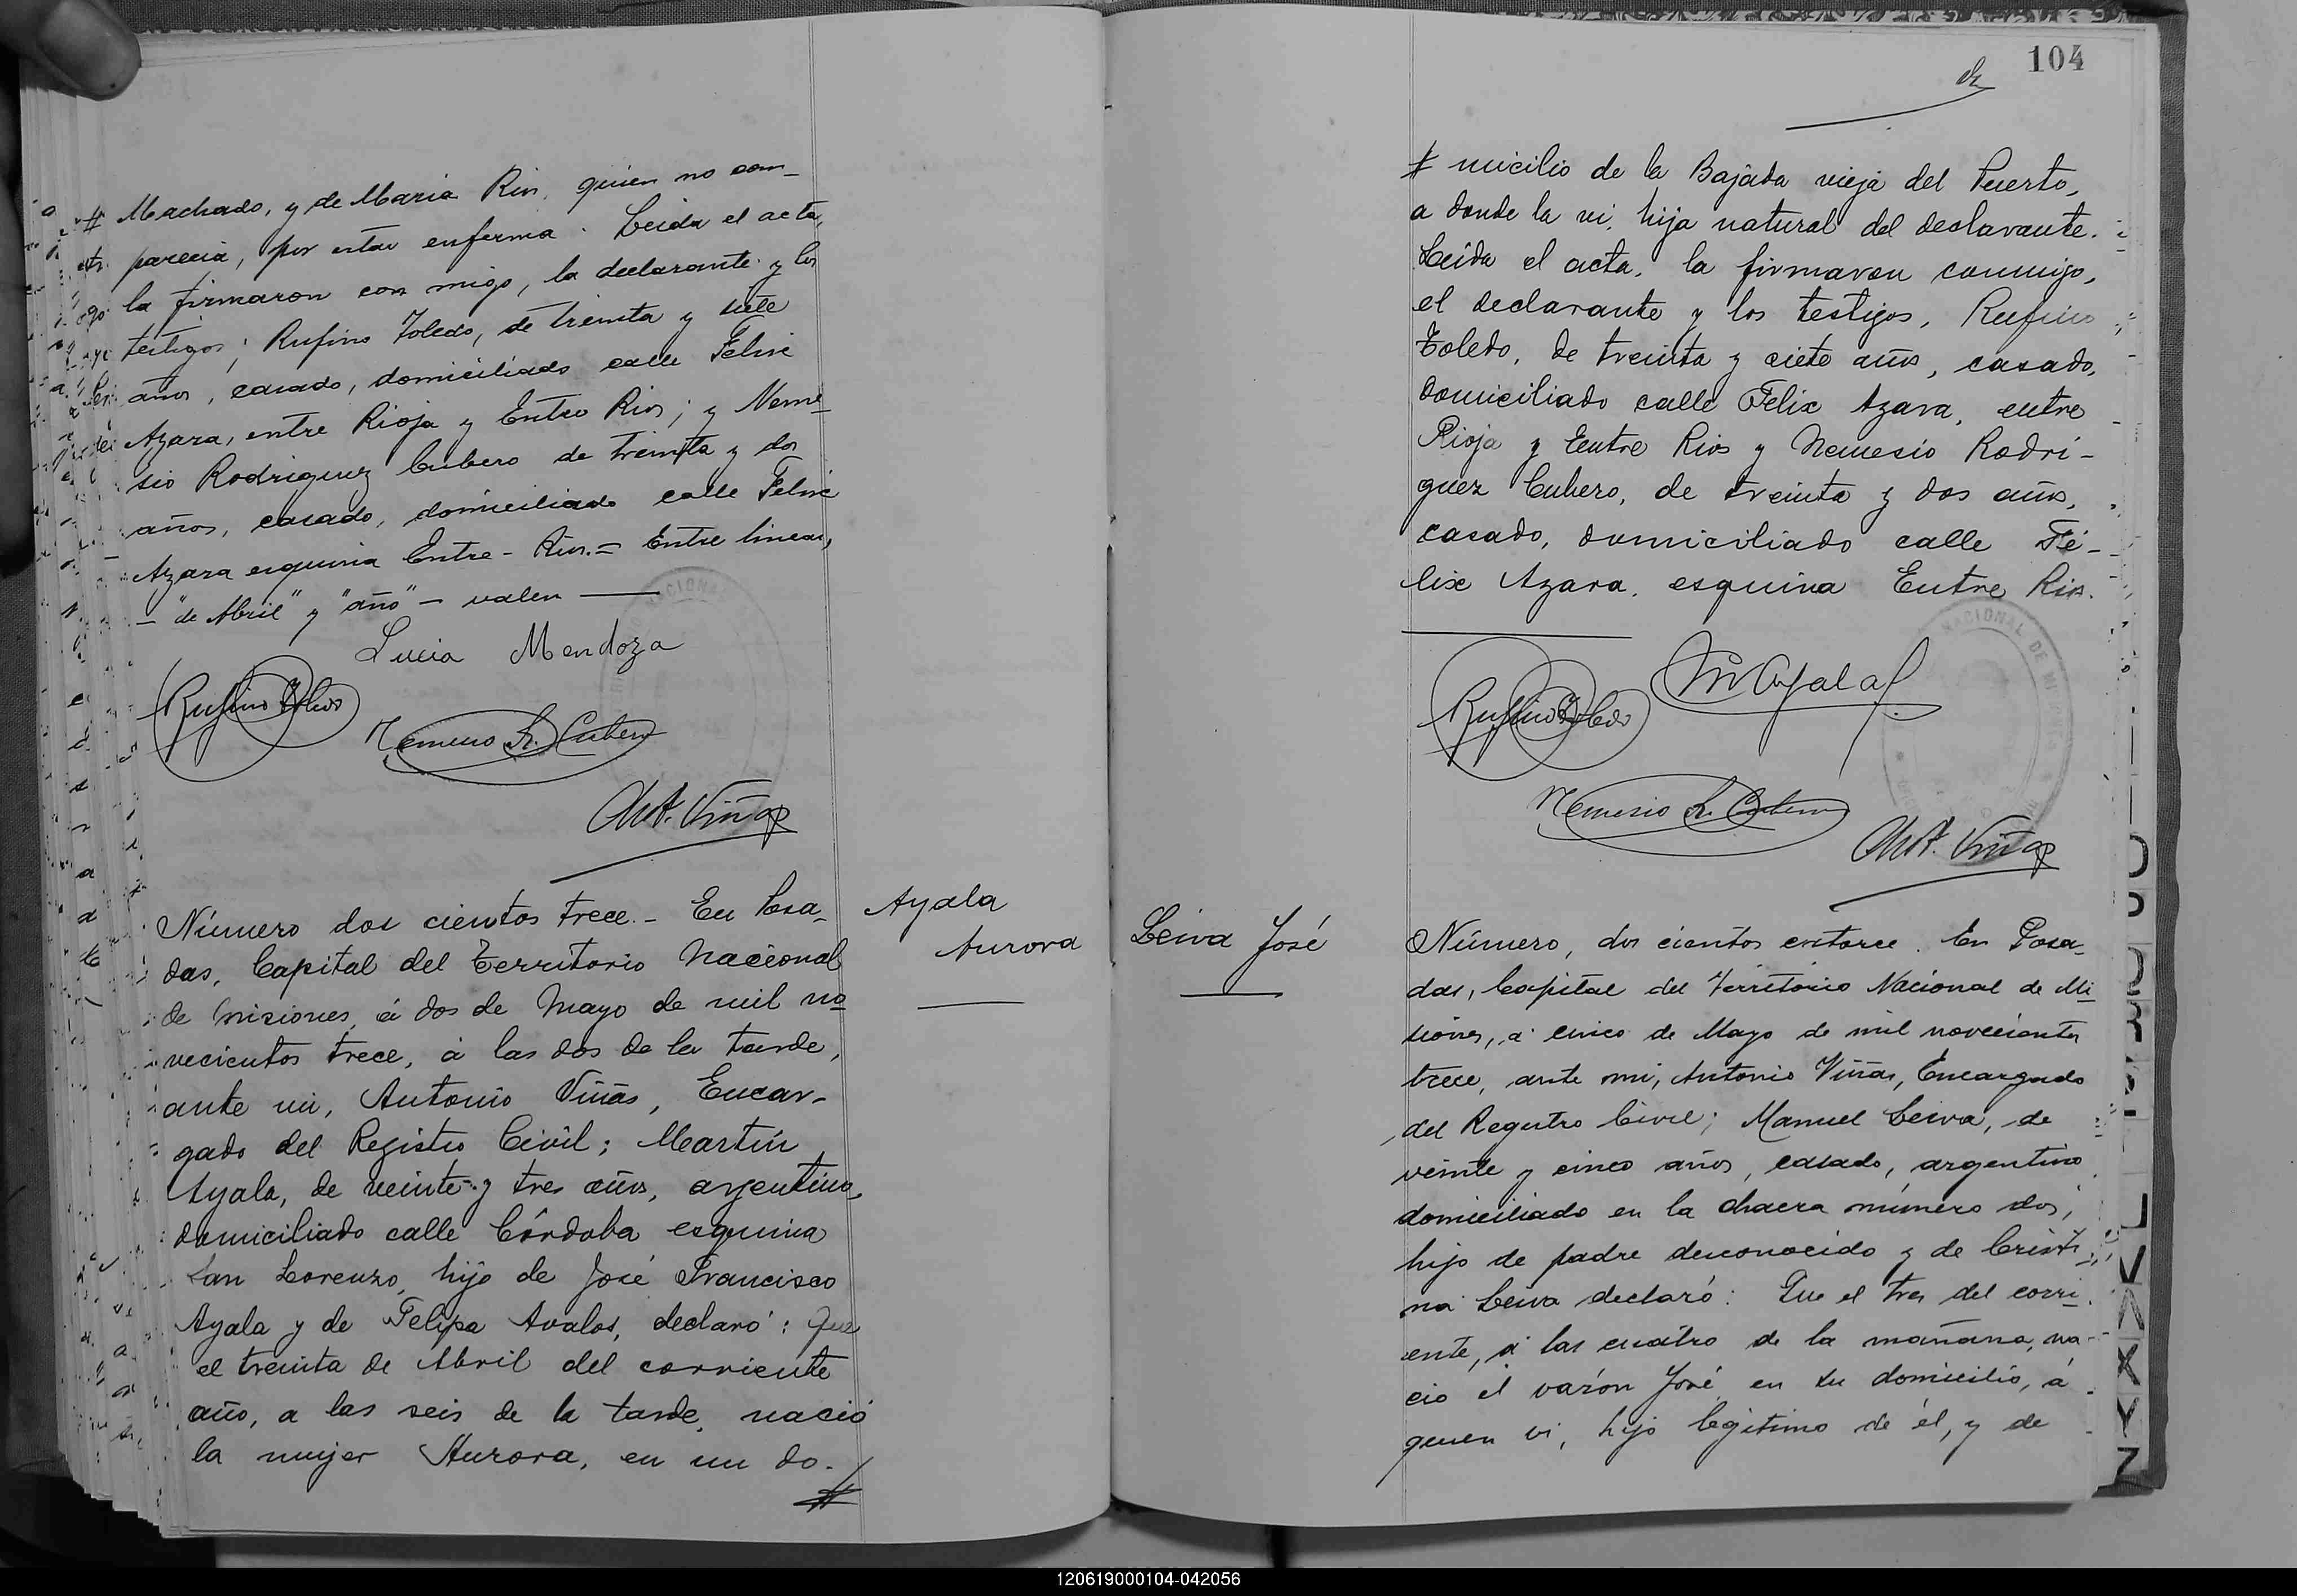 # Machado, y de Maria Rios, quien no com-
parecia, por estar enferma. Leida el acta,
la firmaron con migo, la declarante y los
testigos; Rufino Toledo, de treinta y siete
años, casado, domiciliado calle Felix
Azara, entre Rioja y Entre Rios; y Neme-
sio Rodriguez Cubero de treinta y dos
años, casado, domiciliado calle Felix
Azara esquina Entre-Rios.= Entre lineas,
— "de Abril" y "año" — valen —
Lucia Mendoza
Rufino Toledo
Nemesio R. Cubero
Ant. Viñas
Número dos cientos trece.- En Posa-
das, Capital del Territorio Nacional
de Misiones, á dos de Mayo de mil no-
vecientos trece, á las dos de la tarde,
ante mi, Antonio Viñas, Encar-
gado del Registro Civil; Martín
Ayala, de veinte y tres años, argentino,
domiciliado calle Córdoba esquina
San Lorenzo, hijo de José Francisco
Ayala y de Felipa Avalos, declaró: Que
el treinta de Abril del corriente
año, a las seis de la tarde, nació
la mujer Aurora, en un do-
#
Ayala
Aurora
104
# micilio de la Bajada vieja del Puerto,
a donde la vi, hija natural del declarante.
Leída el acta, la firmaron conmigo,
el declarante y los testigos, Rufino
Toledo, de treinta y siete años, casado,
domiciliado calle Felix Azara, entre
Rioja y Entre Rios y Nemesio Rodri-
guez Cubero, de treinta y dos años,
casado, domiciliado calle Fé-
lix Azara, esquina Entre Rios.
M Ayala
Rufino Toledo
Nemesio R. Cubero
Ant. Viñas
Leiva José
Número, dos cientos catorce. En Posa-
das, Capital del Territorio Nacional de Mi-
siones, á cinco de Mayo de mil novecientos
trece, ante mi, Antonio Viñas, Encargado
del Registro Civil; Manuel Leiva, de
veinte y cinco años, casado, argentino
domiciliado en la chacra número dos,
hijo de padre desconocido y de Cristi-
na Leiva declaró: Que el tres del corri-
ente, á las cuatro de la mañana, na-
cio el varón José en su domicilio, á
quien vi, hijo legitimo de él, y de
120619000104-042056